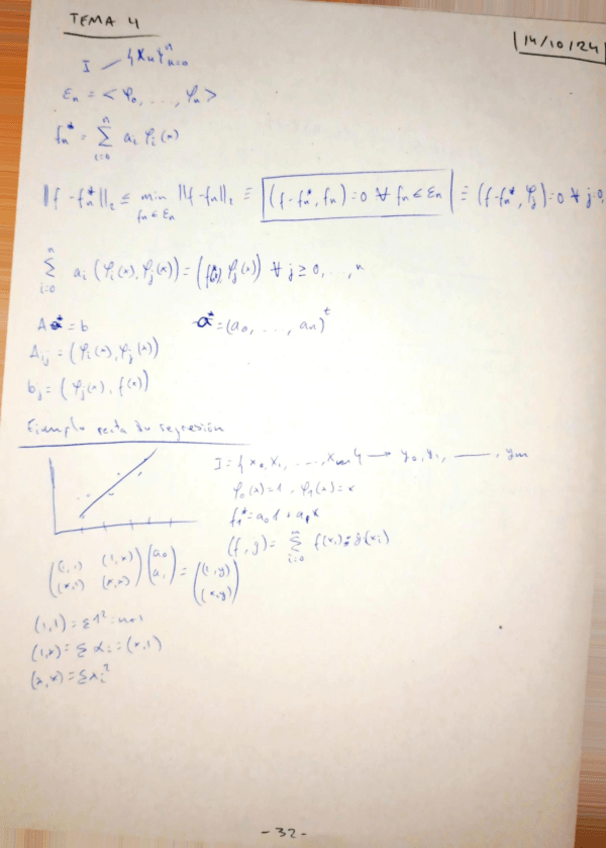 TEMA 4
14/10/24
I {xₙ}ⁿₙ₌₀
εₙ = <φ₀, ..., φₙ>
fₙ* = Σⁿᵢ₌₀ aᵢ φᵢ(x)
||f - fₙ*||₂ ≤ min_{fₙ∈εₙ} ||f - fₙ||₂ ≡ (f - fₙ*, fₙ) = 0 ∀ fₙ ∈ εₙ ≡ (f - fₙ*, φⱼ) = 0 ∀ j=0,
Σⁿᵢ₌₀ aᵢ (φᵢ(x), φⱼ(x)) = (f(x), φⱼ(x)) ∀ j ≥ 0, ..., n
A a* = b a* = (a₀, ..., aₙ)ᵗ
Aᵢⱼ = (φᵢ(x), φⱼ(x))
bⱼ = (φⱼ(x), f(x))
Ejemplo recta de regresión
I = {x₀, x₁, ..., xₘ} → y₀, y₁, —, yₘ
φ₀(x) = 1, φ₁(x) = x
f₁* = a₀1 + a₁x
(f, g) = Σⁿᵢ₌₀ f(xᵢ) g(xᵢ)
((1,1) (1,x)) (a₀) = ((1,y))
((x,1) (x,x)) (a₁) ((x,y))
(1,1) = Σ1² = n+1
(1,x) = Σ xᵢ = (x,1)
(x,x) = Σxᵢ²
-32-